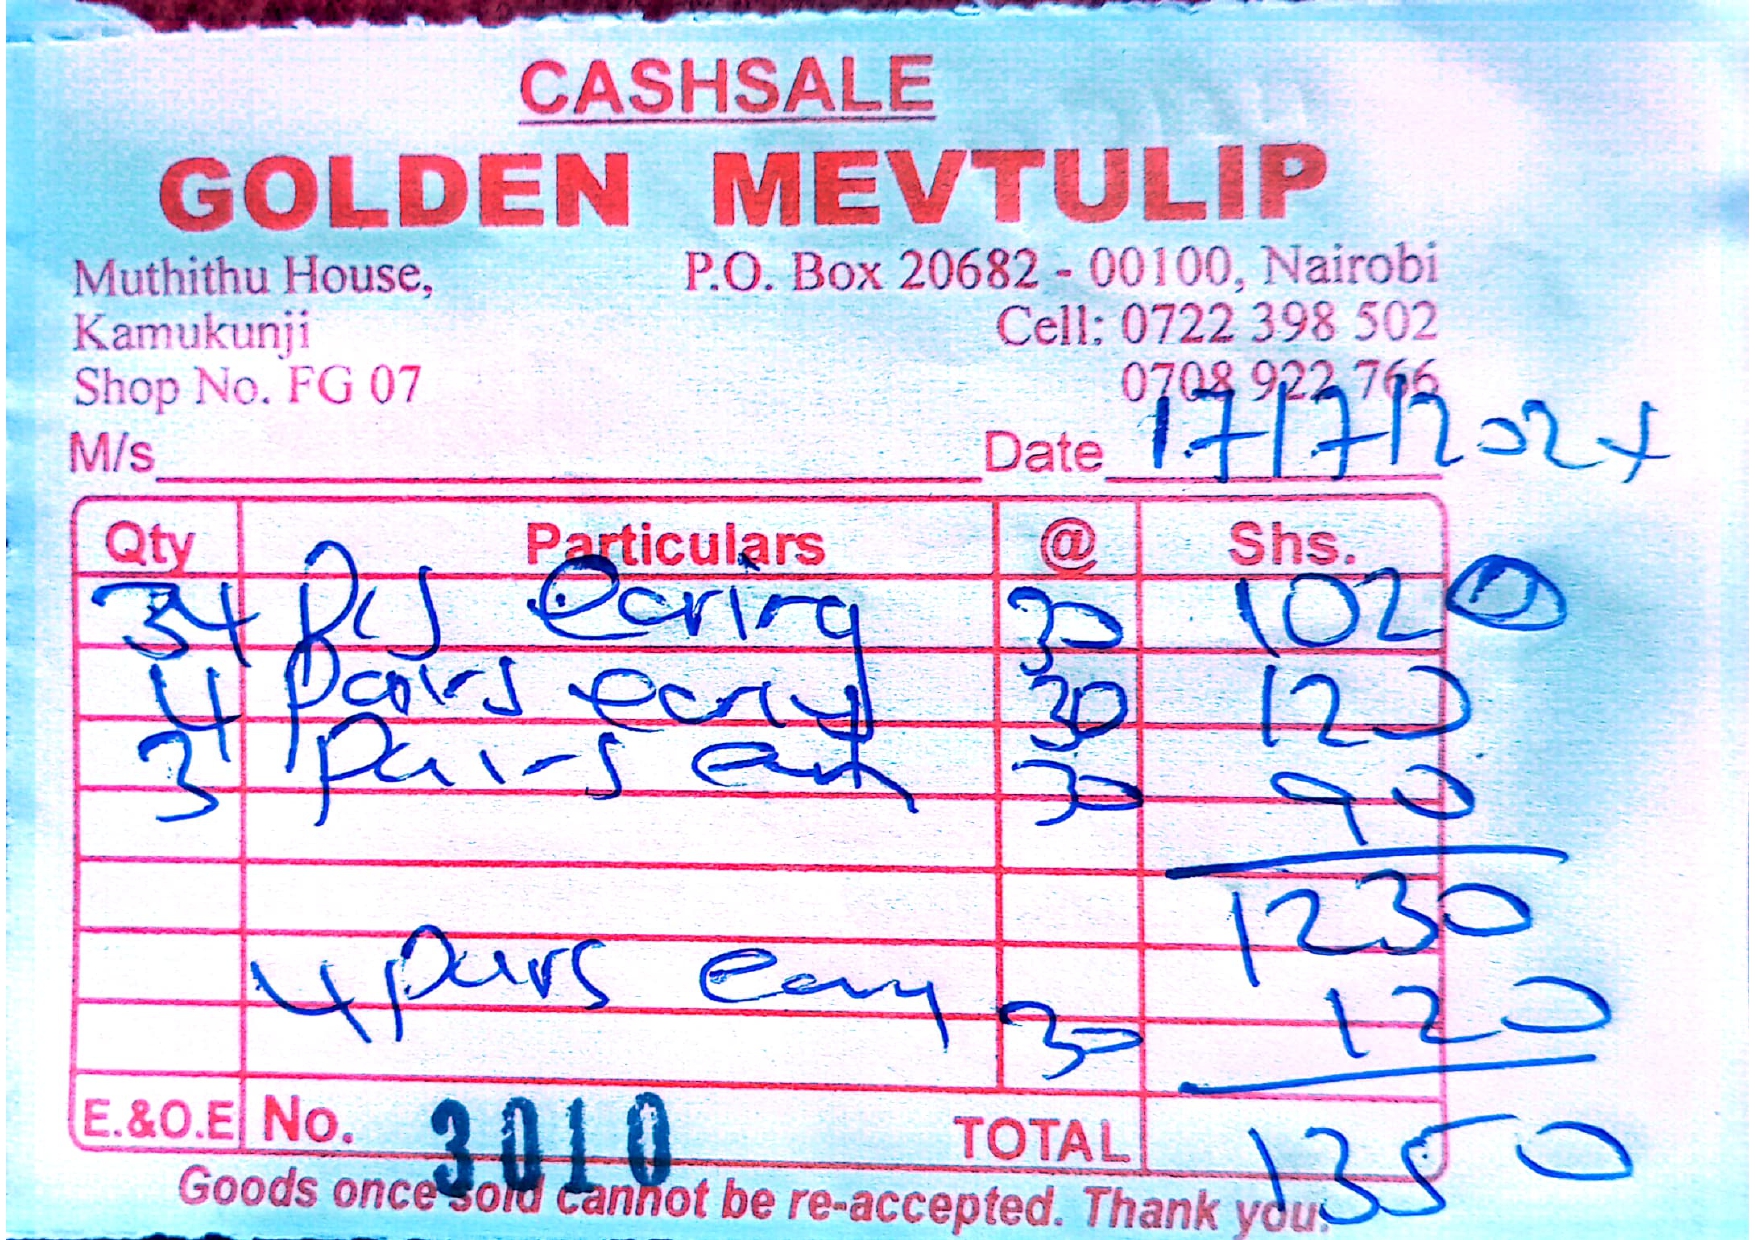 CASHSALE
GOLDEN MEVTULIP
Muthithu House, P.O. Box 20682 - 00100, Nairobi
Kamukunji Cell: 0722 398 502
Shop No. FG 07 0708 922 766
M/s Date 17/7/2024
Qty Particulars @ Shs.
34 pcs earing 30 1020
4 pairs earing 30 120
3 pairs 30 90
1230
4 pairs 30 120
E.&O.E No. 3010 TOTAL 1350
Goods once sold cannot be re-accepted. Thank you.